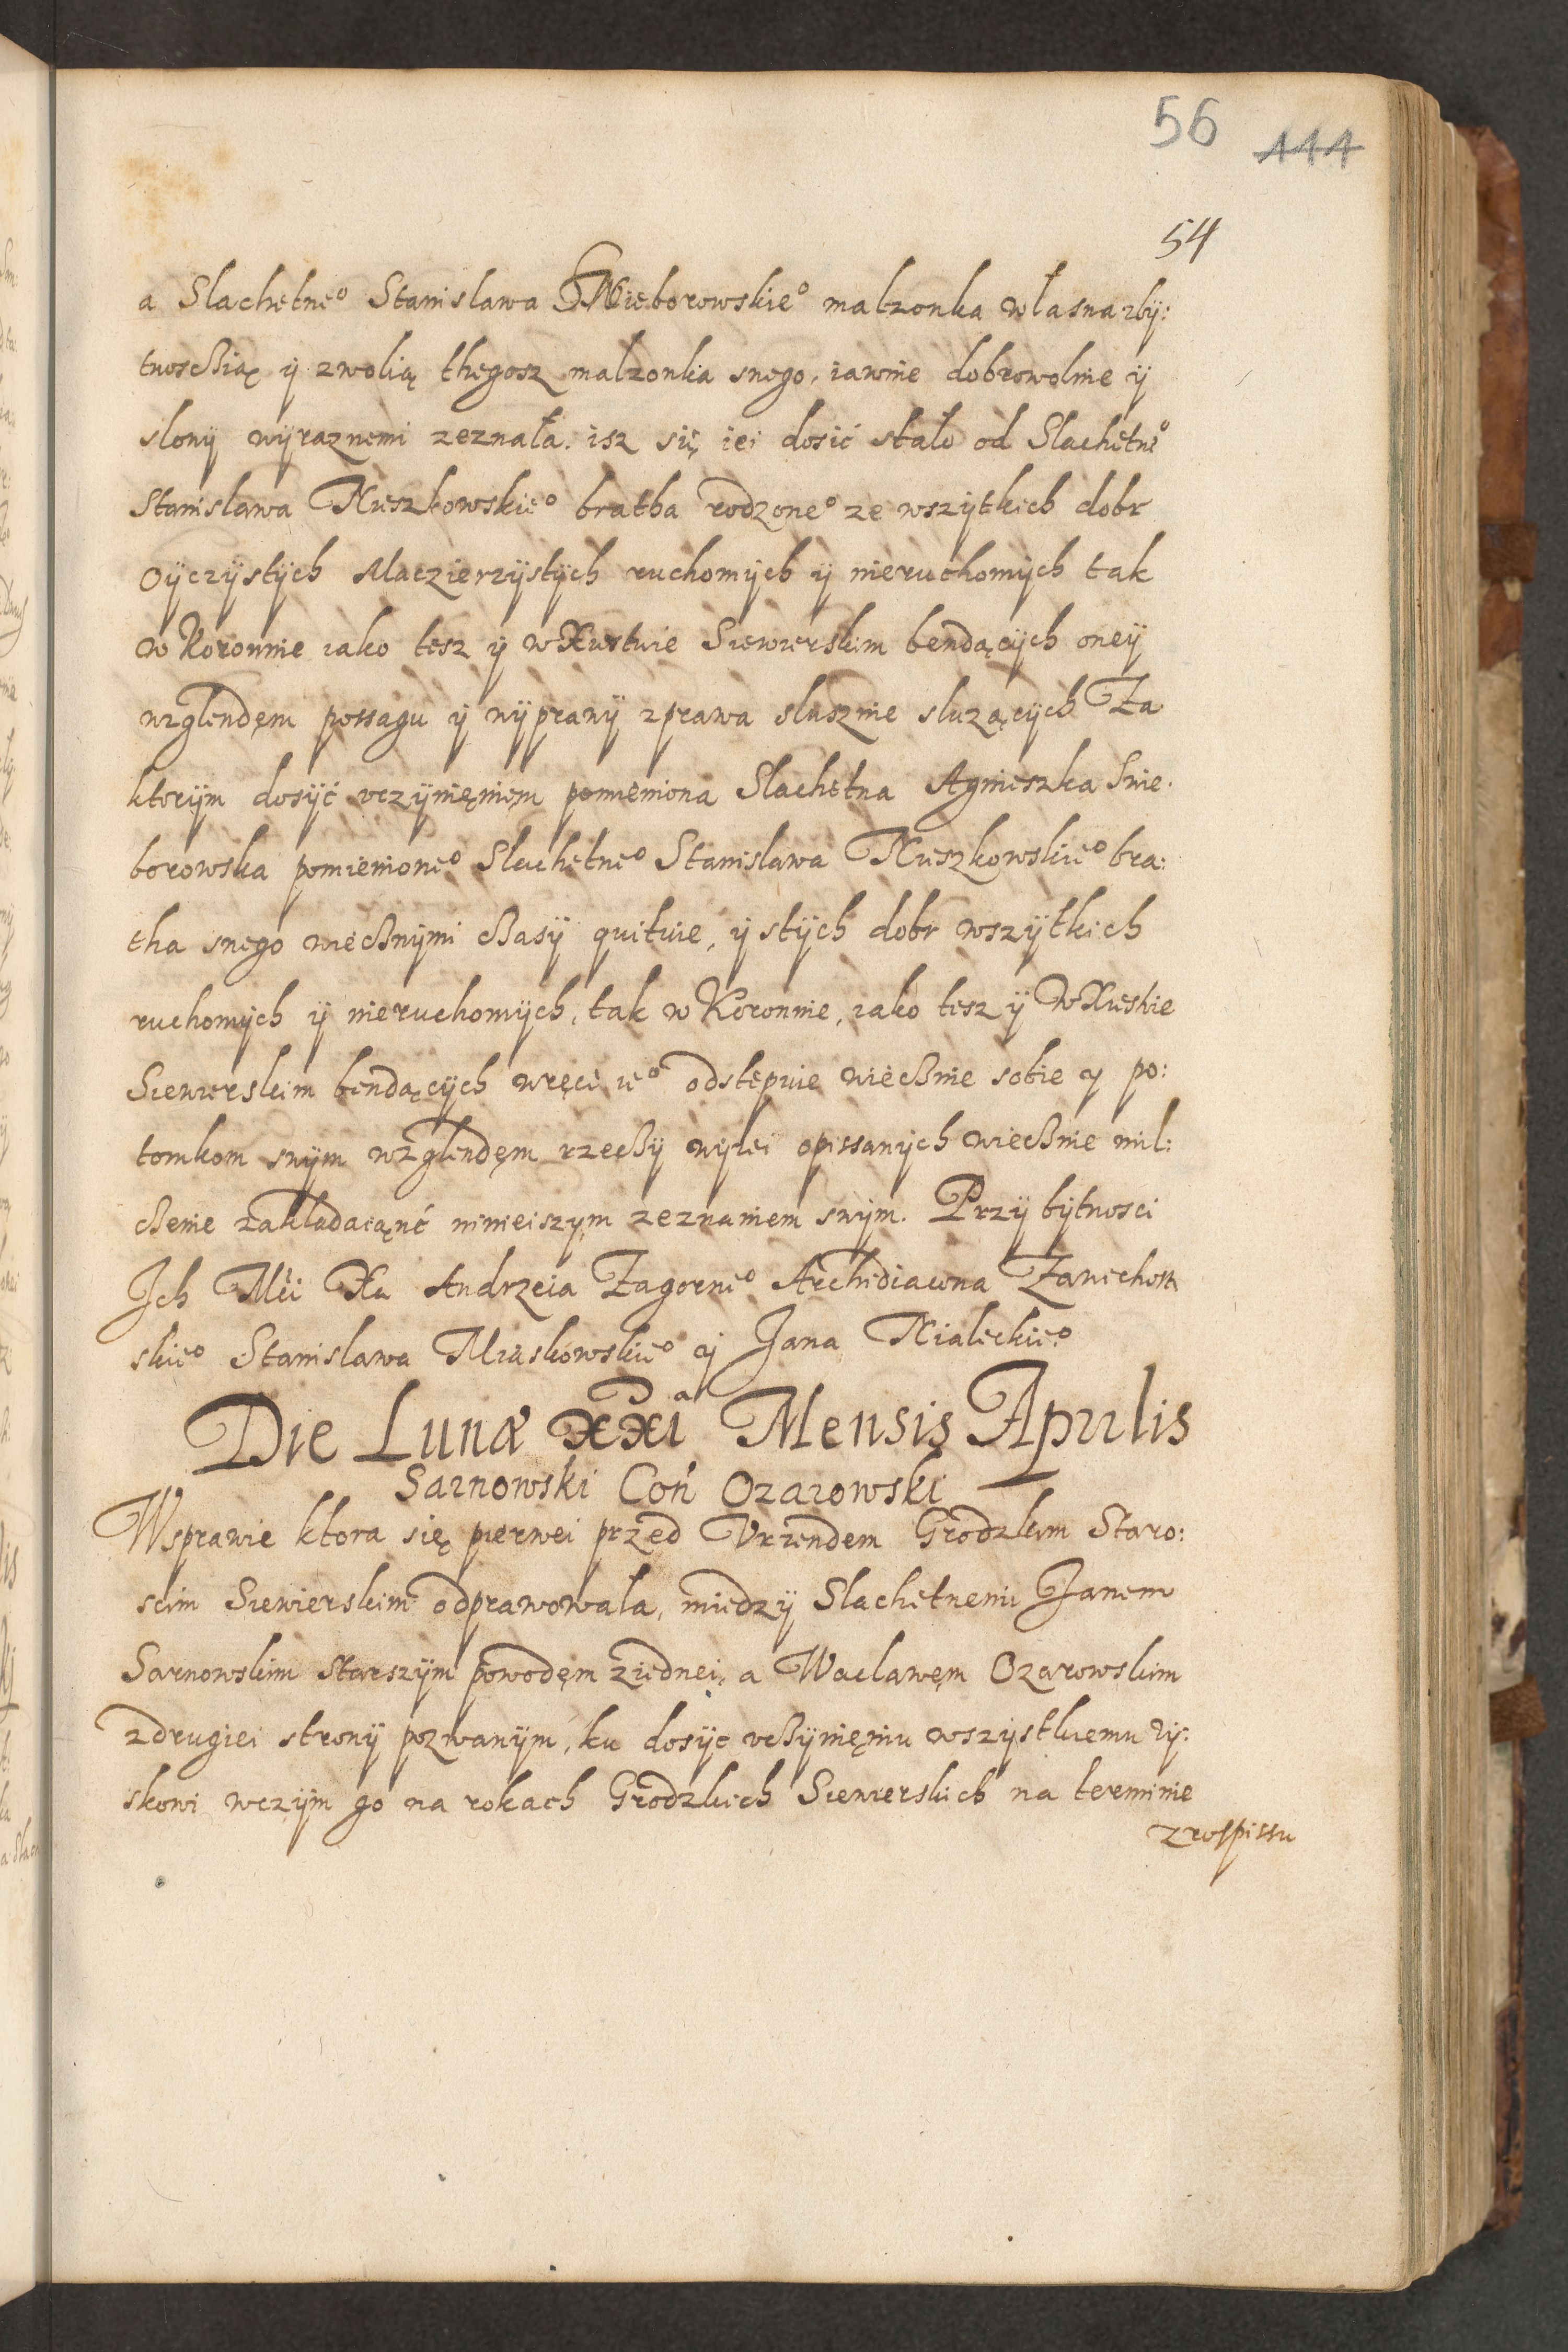 56 111
54
a Slachetne° Stanislawa Snieborowskie° malzonka własna zbÿ:
tnoscziaę ÿ zwolią thegosz malzonka swego, iawnie dobrowolnie ÿ
slowÿ wÿraznemi zeznała. isz się iei dosić stało od Slachetne°
Stanislawa Kuszkowskie° bratha rodzone° ze wszÿtkich dobr
Oÿczÿstÿch Maczierzÿstÿch ruchomÿch ÿ nieruchomÿch tak
w Koronnie iako tesz ÿ w Xiestwie Siewierskim bendącÿch oneÿ
wzglendęm possagu ÿ wÿprawÿ zprawa slusznie sluzącÿch Za
ktorÿm dosÿć vczÿnięniem pomieniona Slachetna Agnieszka Snie.
borowska pomienione° Slachetne° Stanislawa Kuszkowskie° bra:
tha swego wiecznÿmi czasÿ quituie, ÿ stÿch dobr wszÿtkich
ruchomÿch ÿ nieruchomÿch, tak w Koronnie, iako tesz ÿ W Xiestwie
Siewierskim bendącÿch wręcę ie° odstępuie wiecznie sobie ÿ po:
tomkom swÿm wzglendęm rzeczÿ wÿzei opissanÿch wiecznie mil:
czenie zakładaiąnć ninieiszÿm zeznaniem swÿm. Przÿ bÿtnosci
Jch Mći Xa Andrzeia Zagorne° Archidiacona Zawichost
skie° Stanislawa Miaskowskie° ÿ Jana Nialeckie°
Die Lunæ xxia Mensis Aprilis
Sarnowski Coń Ozarowski
Wsprawie ktora się pierwei przed Vrzendem Grodzkim Staro:
scim Siewierskim odprawowała, miedzÿ Slachetnemi Janem
Sarnowskim starszÿm powodęm ziednei, a Waclawęm Ozarowskim
zdrugiei stronÿ pozwanÿm, ku dosÿc vczÿnięniu wszÿstkiemu zÿ:
skowi wczÿm go na rokach Grodzkich Siewierskich na terminie
z rospissu